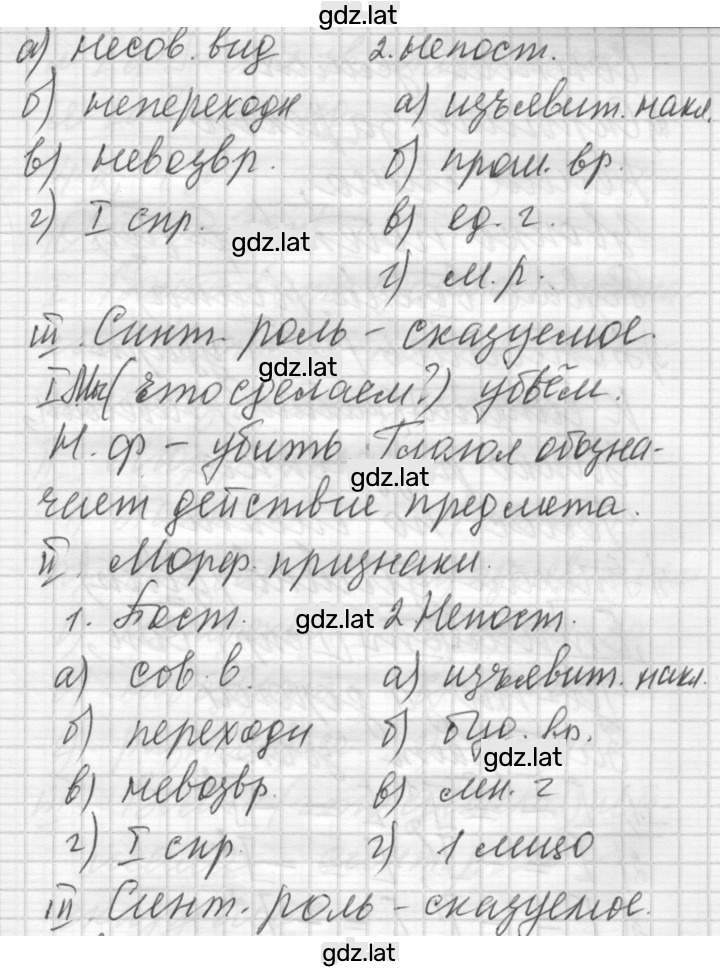 gdz.lat
а) несов. вид 2. непост.
б) непереходн а) изъявит. накл.
в) невозвр. б) прош. вр.
г) I спр. в) ед. ч.
gdz.lat
г) м. р.
III. Синт. роль – сказуемое.
gdz.lat
I Мы (что сделаем?) убьём.
Н. ф – убить. Глагол обозна-
gdz.lat
чает действие предмета.
II. Морф. признаки.
1. Пост. 2. Непост.
gdz.lat
а) сов. в. а) изъявит. накл.
б) переходн б) буд. вр.
gdz.lat
в) невозвр. в) мн. ч
г) I спр. г) 1 лицо
III. Синт. роль – сказуемое.
gdz.lat